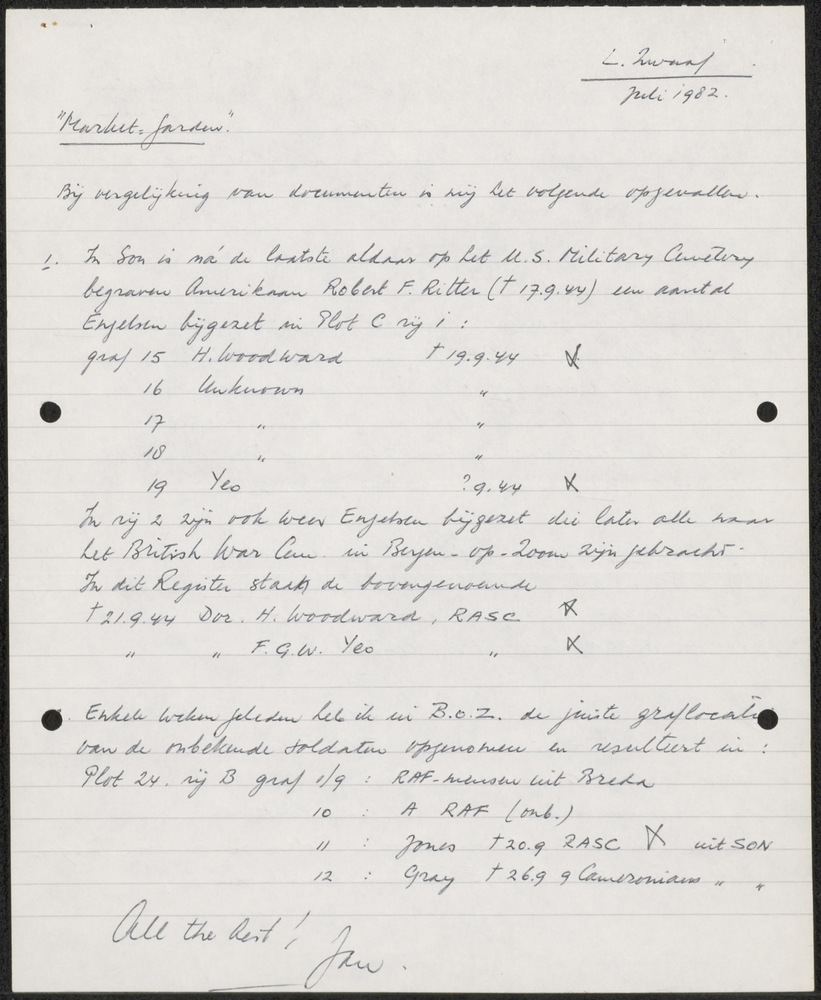 L. Zwaaf
Juli 1982.
"Market-Garden".
Bij vergelijking van documenten is mij het volgende opgevallen.
1. In Son is ná de laatste aldaar op het U.S. Military Cemetery
begraven Amerikaan Robert F. Ritter († 17.9.44) een aantal
Engelsen bijgezet in Plot C rij 1 :
graf 15 H. Woodward † 19.9.44 X
16 Unknown "
17 " "
18 " "
19 Yeo ? 9.44 X
In rij 2 zijn ook weer Engelsen bijgezet die later alle naar
het British War Cem. in Bergen-op-Zoom zijn gebracht.
In dit Register staat de bovengenoemde
† 21.9.44 Dvr. H. Woodward, RASC X
" " F.G.W. Yeo " X
Enkele weken geleden heb ik in B.o.Z. de juiste graflocatie
van de onbekende soldaten opgenomen en resulteert in :
Plot 24. rij B graf 1/9 : RAF-mensen uit Breda
10 : A RAF (onb.)
11 : Jones † 20.9 RASC X uit SON
12 : Gray † 26.9 9 Cameronians " "
All the best!
Jan.